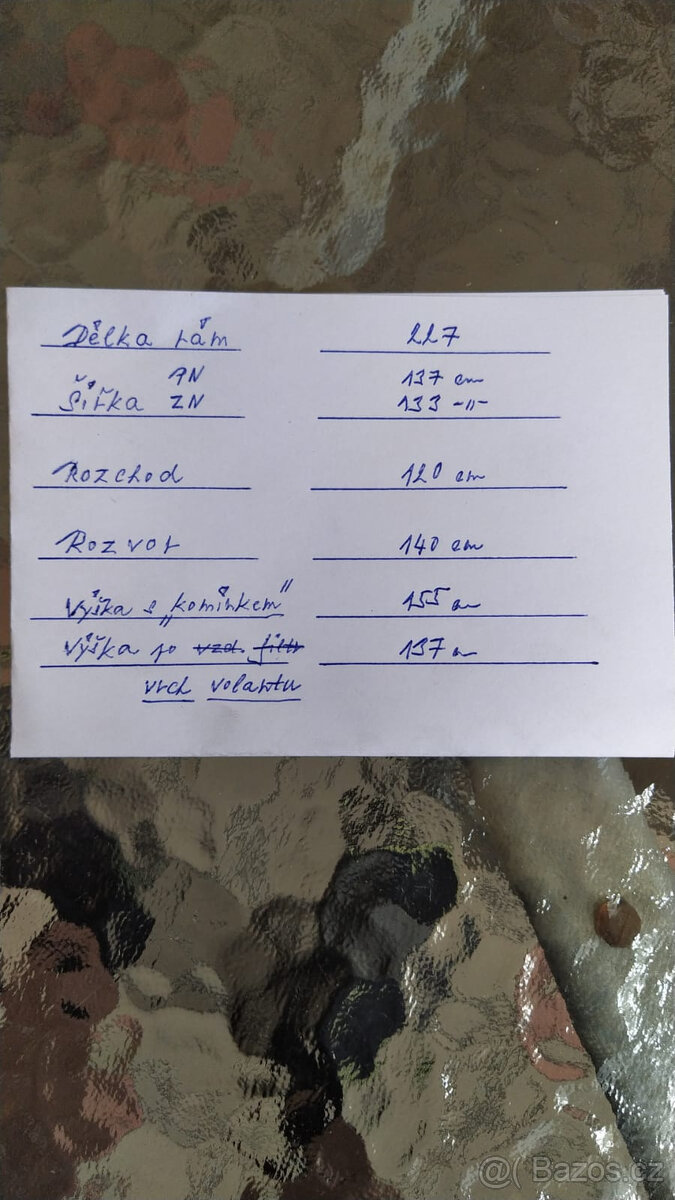 Délka rám 227
Šířka PN 137 cm
ZN 133 -"-
Rozchod 120 cm
Rozvor 140 cm
Výška s „komínkem" 155 cm
Výška po vzd. filtr 137 cm
vrch volantu
@( Bazos.cz